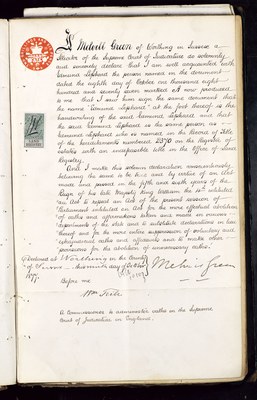 I Melvill Green of Worthing in Sussex a
Solicitor of the Supreme Court of Judicature do solemnly
and sincerely declare that I am well acquainted with
the person named in the document
dated the eighth day of October one thousand eight
hundred and seventy seven marked A now produced
to me that I saw him sign the same document that
the name at the foot thereof is the
handwriting of the said and that
the said is the same person as
who is named in the Record of Title
of the hereditaments numbered 2370 on the Register of
estates with an indefeasible title in the Office of Land
Registry.
And I make this solemn declaration conscientiously
believing the same to be true and by virtue of an Act
made and passed in the fifth and sixth years of the
Reign of his late Majesty King William the 4th intituled
"An Act to repeal an Act of the present session of
Parliament intituled an Act for the more effectual abolition
of oaths and affirmations taken and made in various
departments of the state and to substitute declarations in lieu
thereof and for the more entire suppression of voluntary and
extrajudicial oaths and affidavits and to make other
provisions for the abolition of unnecessary oaths."
Declared at Worthing in the County
of Sussex this ninth day of October
1877
Melvill Green
Before me
Wm
A Commissioner to administer oaths in the Supreme
Court of Judicature in England.